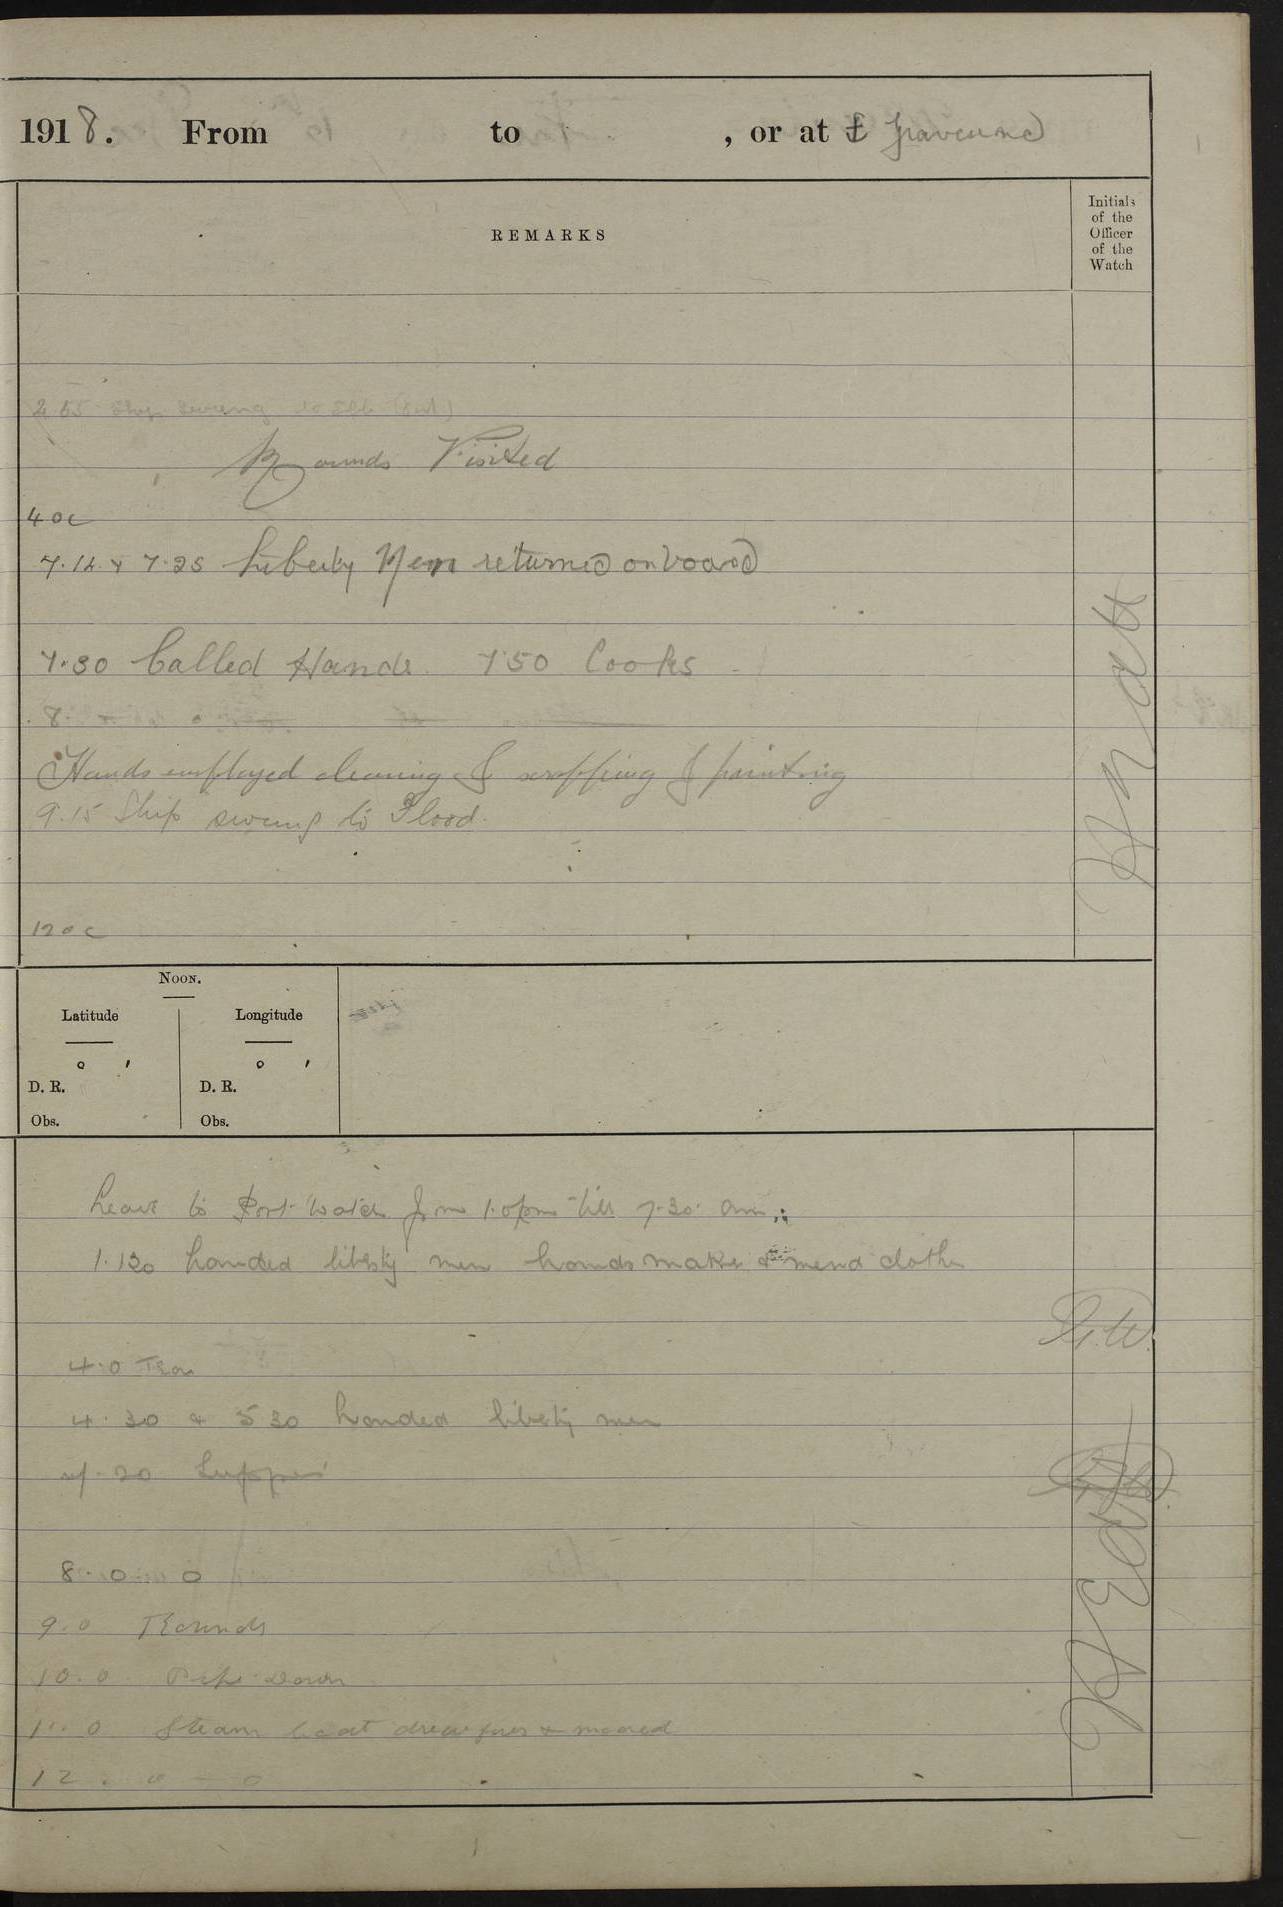 1918. From to , or at
REMARKS
Initials
of the
Officer
of the
Watch
2.55 Ship swung to Ebb
Rounds Visited
4 oc
7.14 & 7.25 Liberty Men returned onboard
7.30 Called Hands 7 50 Cooks
8.
Hands employed cleaning & scrapping & painting
9.15 Ship swung to Flood.
12 o c
NOON.
Latitude Longitude
° ′ ° ′
D. R. D. R.
Obs. Obs.
Leave to Port Watch from 1.0 pm till 7.30. am.
landed liberty men hands make & mend clothes
4.0 Tea
4.30 & 5 30 landed liberty men
7.20 Supper
8. 0 0
9.0 Rounds
10.0 Pipe down
11.0 Steam boat drew fires & moored
12. 0 - 0